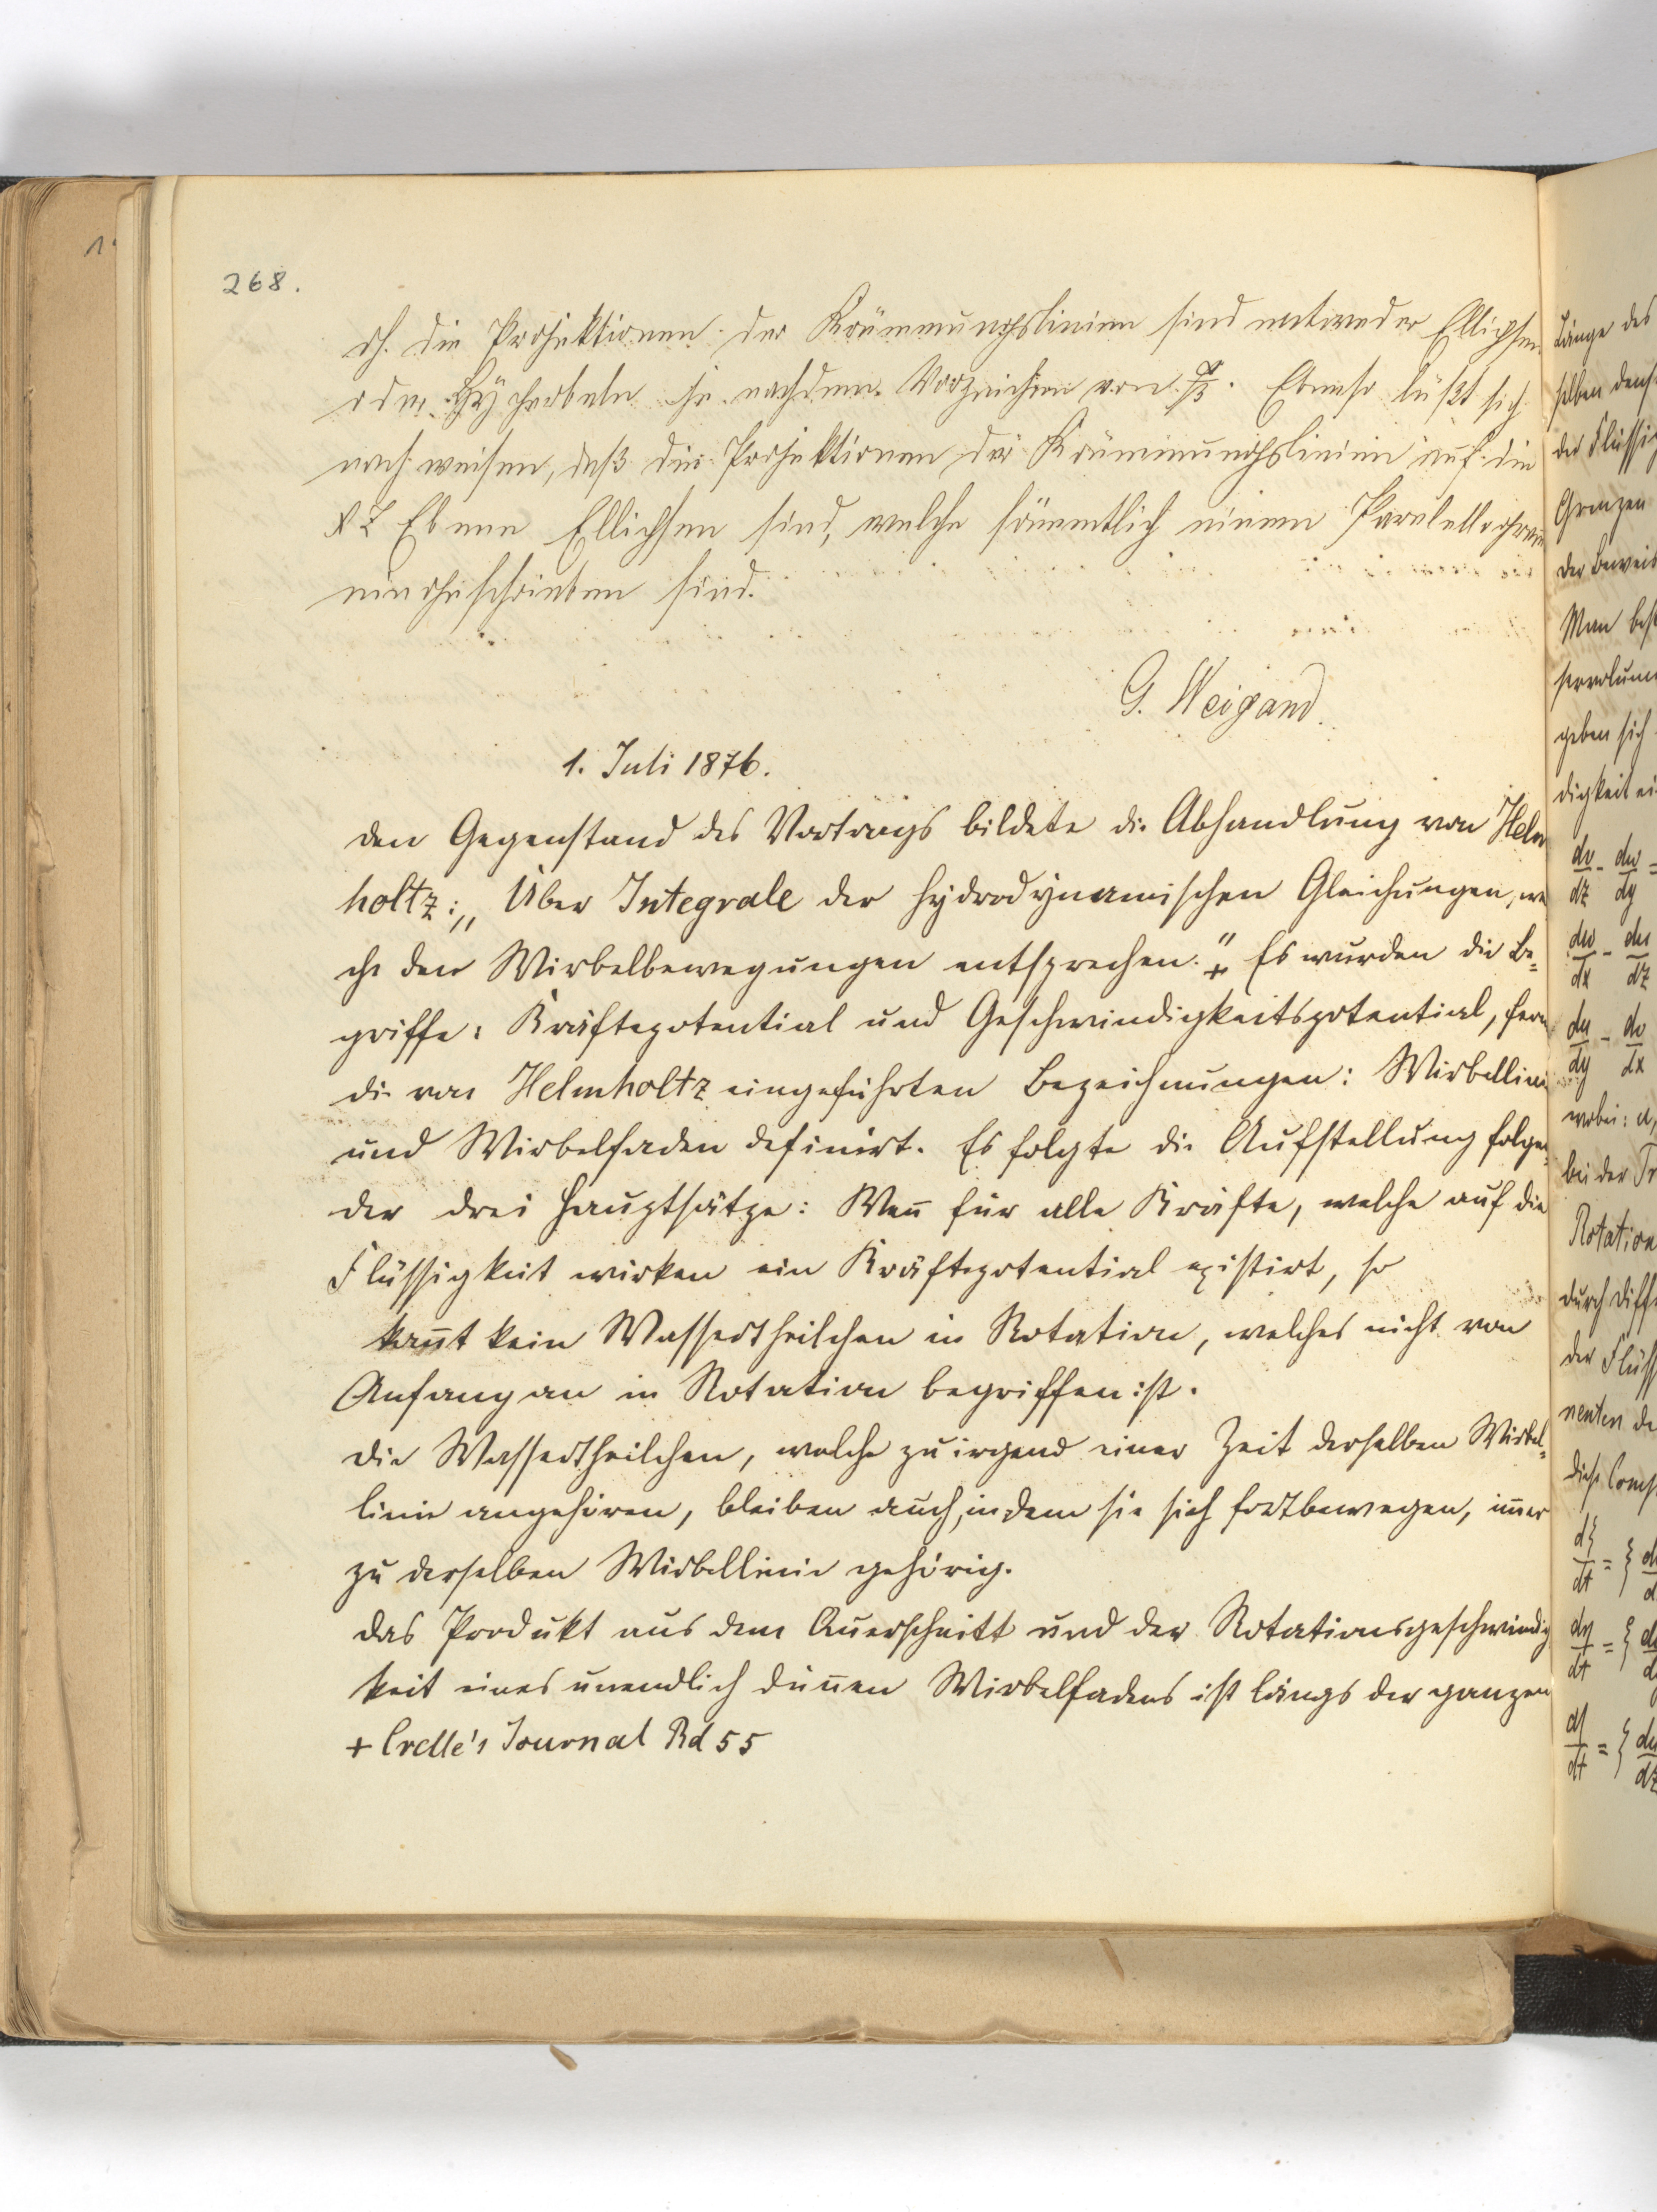 268.
d.h. die Projektionen der Krümmungslinien sind entweder Ellipsen
oder Hyperbeln je nach dem Vorzeichen von α/β. Ebenso läßt sich
nachweisen, daß die Projektionen der Krümmungslinien auf die
XZ Ebene Ellipsen sind, welche sämmtlich einem Paralellogram
eingeschrieben sind.
G. Weigand.
1. Juli 1876.
Den Gegenstand des Vortrags bildete die Abhandlung von Helm
holtz: „Über Integrale der hydrodynamischen Gleichungen, wel
che den Wirbelbewegungen entsprechen."+ Es wurden die Be=
griffe: Kräftepotential und Geschwindigkeitspotential, fern
die von Helmholtz eingeführten Bezeichnungen: Wirbellinie
und Wirbelfaden definirt. Es folgte die Aufstellung folgen=
der drei Hauptsätze: Weñ für alle Kräfte, welche auf die
Flüssigkeit wirken ein Kräftepotential existirt, so
kom̃t kein Wassertheilchen in Rotation, welches nicht von
Anfang an in Rotation begriffen ist.
Die Wassertheilchen, welche zu irgend einer Zeit derselben Wirbel=
linie angehören, bleiben auch, indem sie sich fortbewegen, im̃er
zu derselben Wirbellinie gehörig.
Das Produkt aus dem Querschnitt und der Rotationsgeschwindig
keit eines unendlich düñen Wirbelfadens ist längs der ganzen
+ Crelle's Journal Bd 55
Länge des
selben dens
der Flüssig
Grenzen
Der Beweis
Man bes
geben sich
digkeit ei
dv/dz - dw/dy =
dw/dx - du/dz
du/dy - dv/dx
wobei: u,
bei der Tr
Rotation
durch Diff
der Flüss
nenten de
diese Comp
dξ/dt = ξ d
dη/dt = ξ d
dζ/dt = ξ du/dz